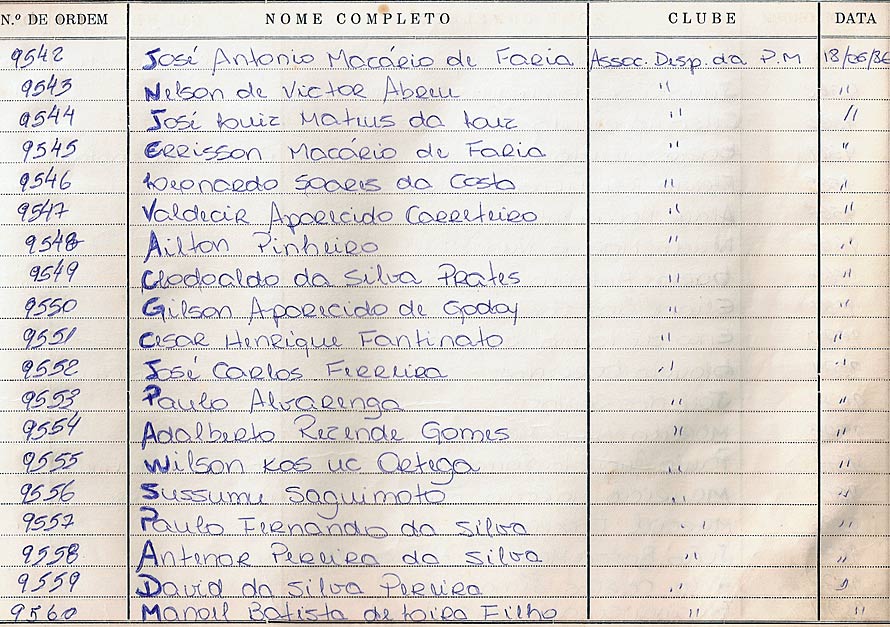 N.º DE ORDEM NOME COMPLETO CLUBE DATA
9542 José Antonio Macário de Faria Assoc. Desp. da P.M 18/06/86
9543 Nelson de Victor Abreu " "
9544 José Luiz Mateus da Luz " "
9545 Erisson Macário de Faria " "
9546 Leonardo Soares da Costa " "
9547 Valdecir Aparecido Carreteiro " "
9548 Ailton Pinheiro " "
9549 Clodoaldo da Silva Prates " "
9550 Gilson Aparecido de Godoy " "
9551 Cesar Henrique Fantinato " "
9552 José Carlos Ferreira " "
9553 Paulo Alvarenga " "
9554 Adalberto Rezende Gomes " "
9555 Wilson Kos uc Ortega " "
9556 Sussumu Saguimoto " "
9557 Paulo Fernando da Silva " "
9558 Antenor Pereira da Silva " "
9559 David da Silva Pereira " "
9560 Manoel Batista de Loira Filho " "